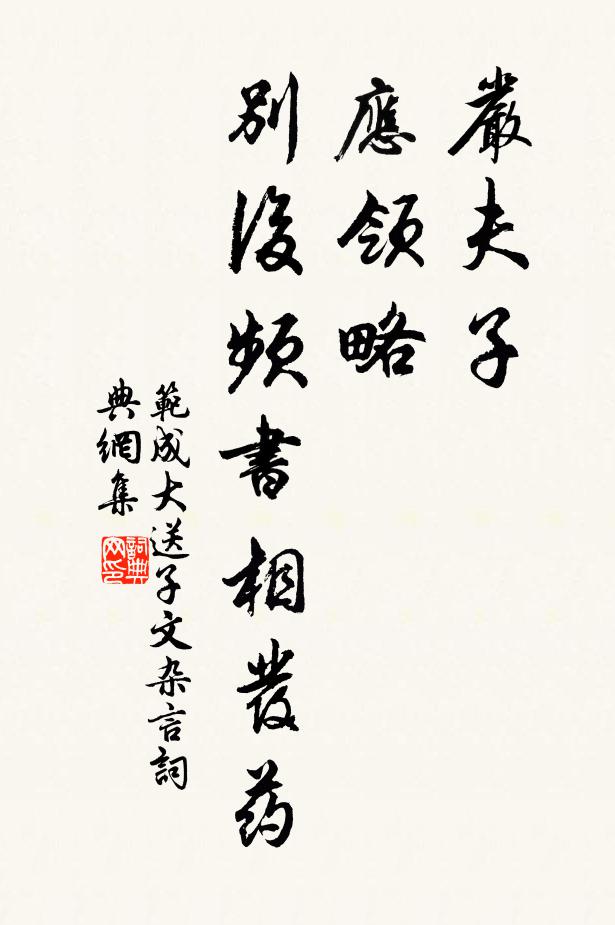 嚴夫子
應領略
別後頻書相發药
範成大送子文杂言詞
典網集
詞典
网印